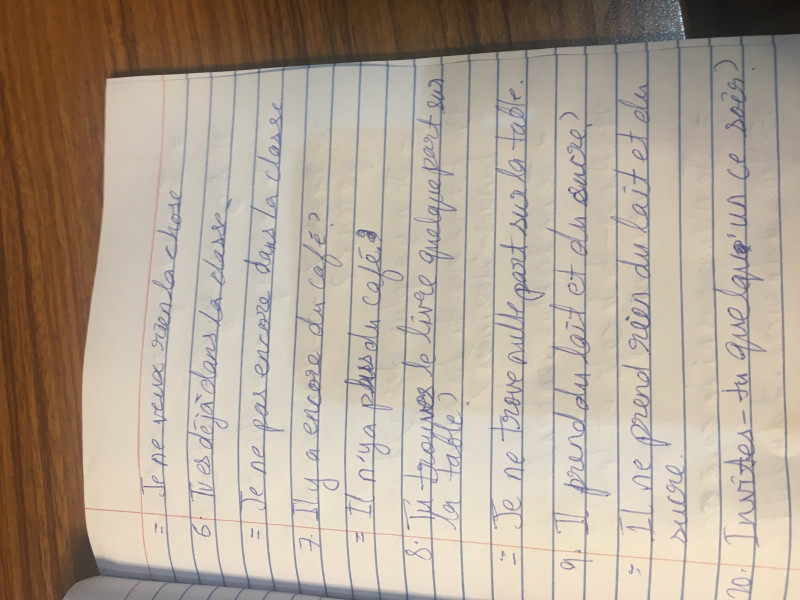 = Je ne veux rien la chose
6. Tu es déjà dans la classe
= Je ne pas encore dans la classe
7. Il y a encore du café?
= Il n'y a plus du café.
8. Tu trouves le livre quelque part sur
la table?
= Je ne trove nulle part sur la table.
9. Il prend du lait et du sucre?
= Il ne prend rien du lait et du
sucre.
10. Invites-tu quelqu'un ce soir?